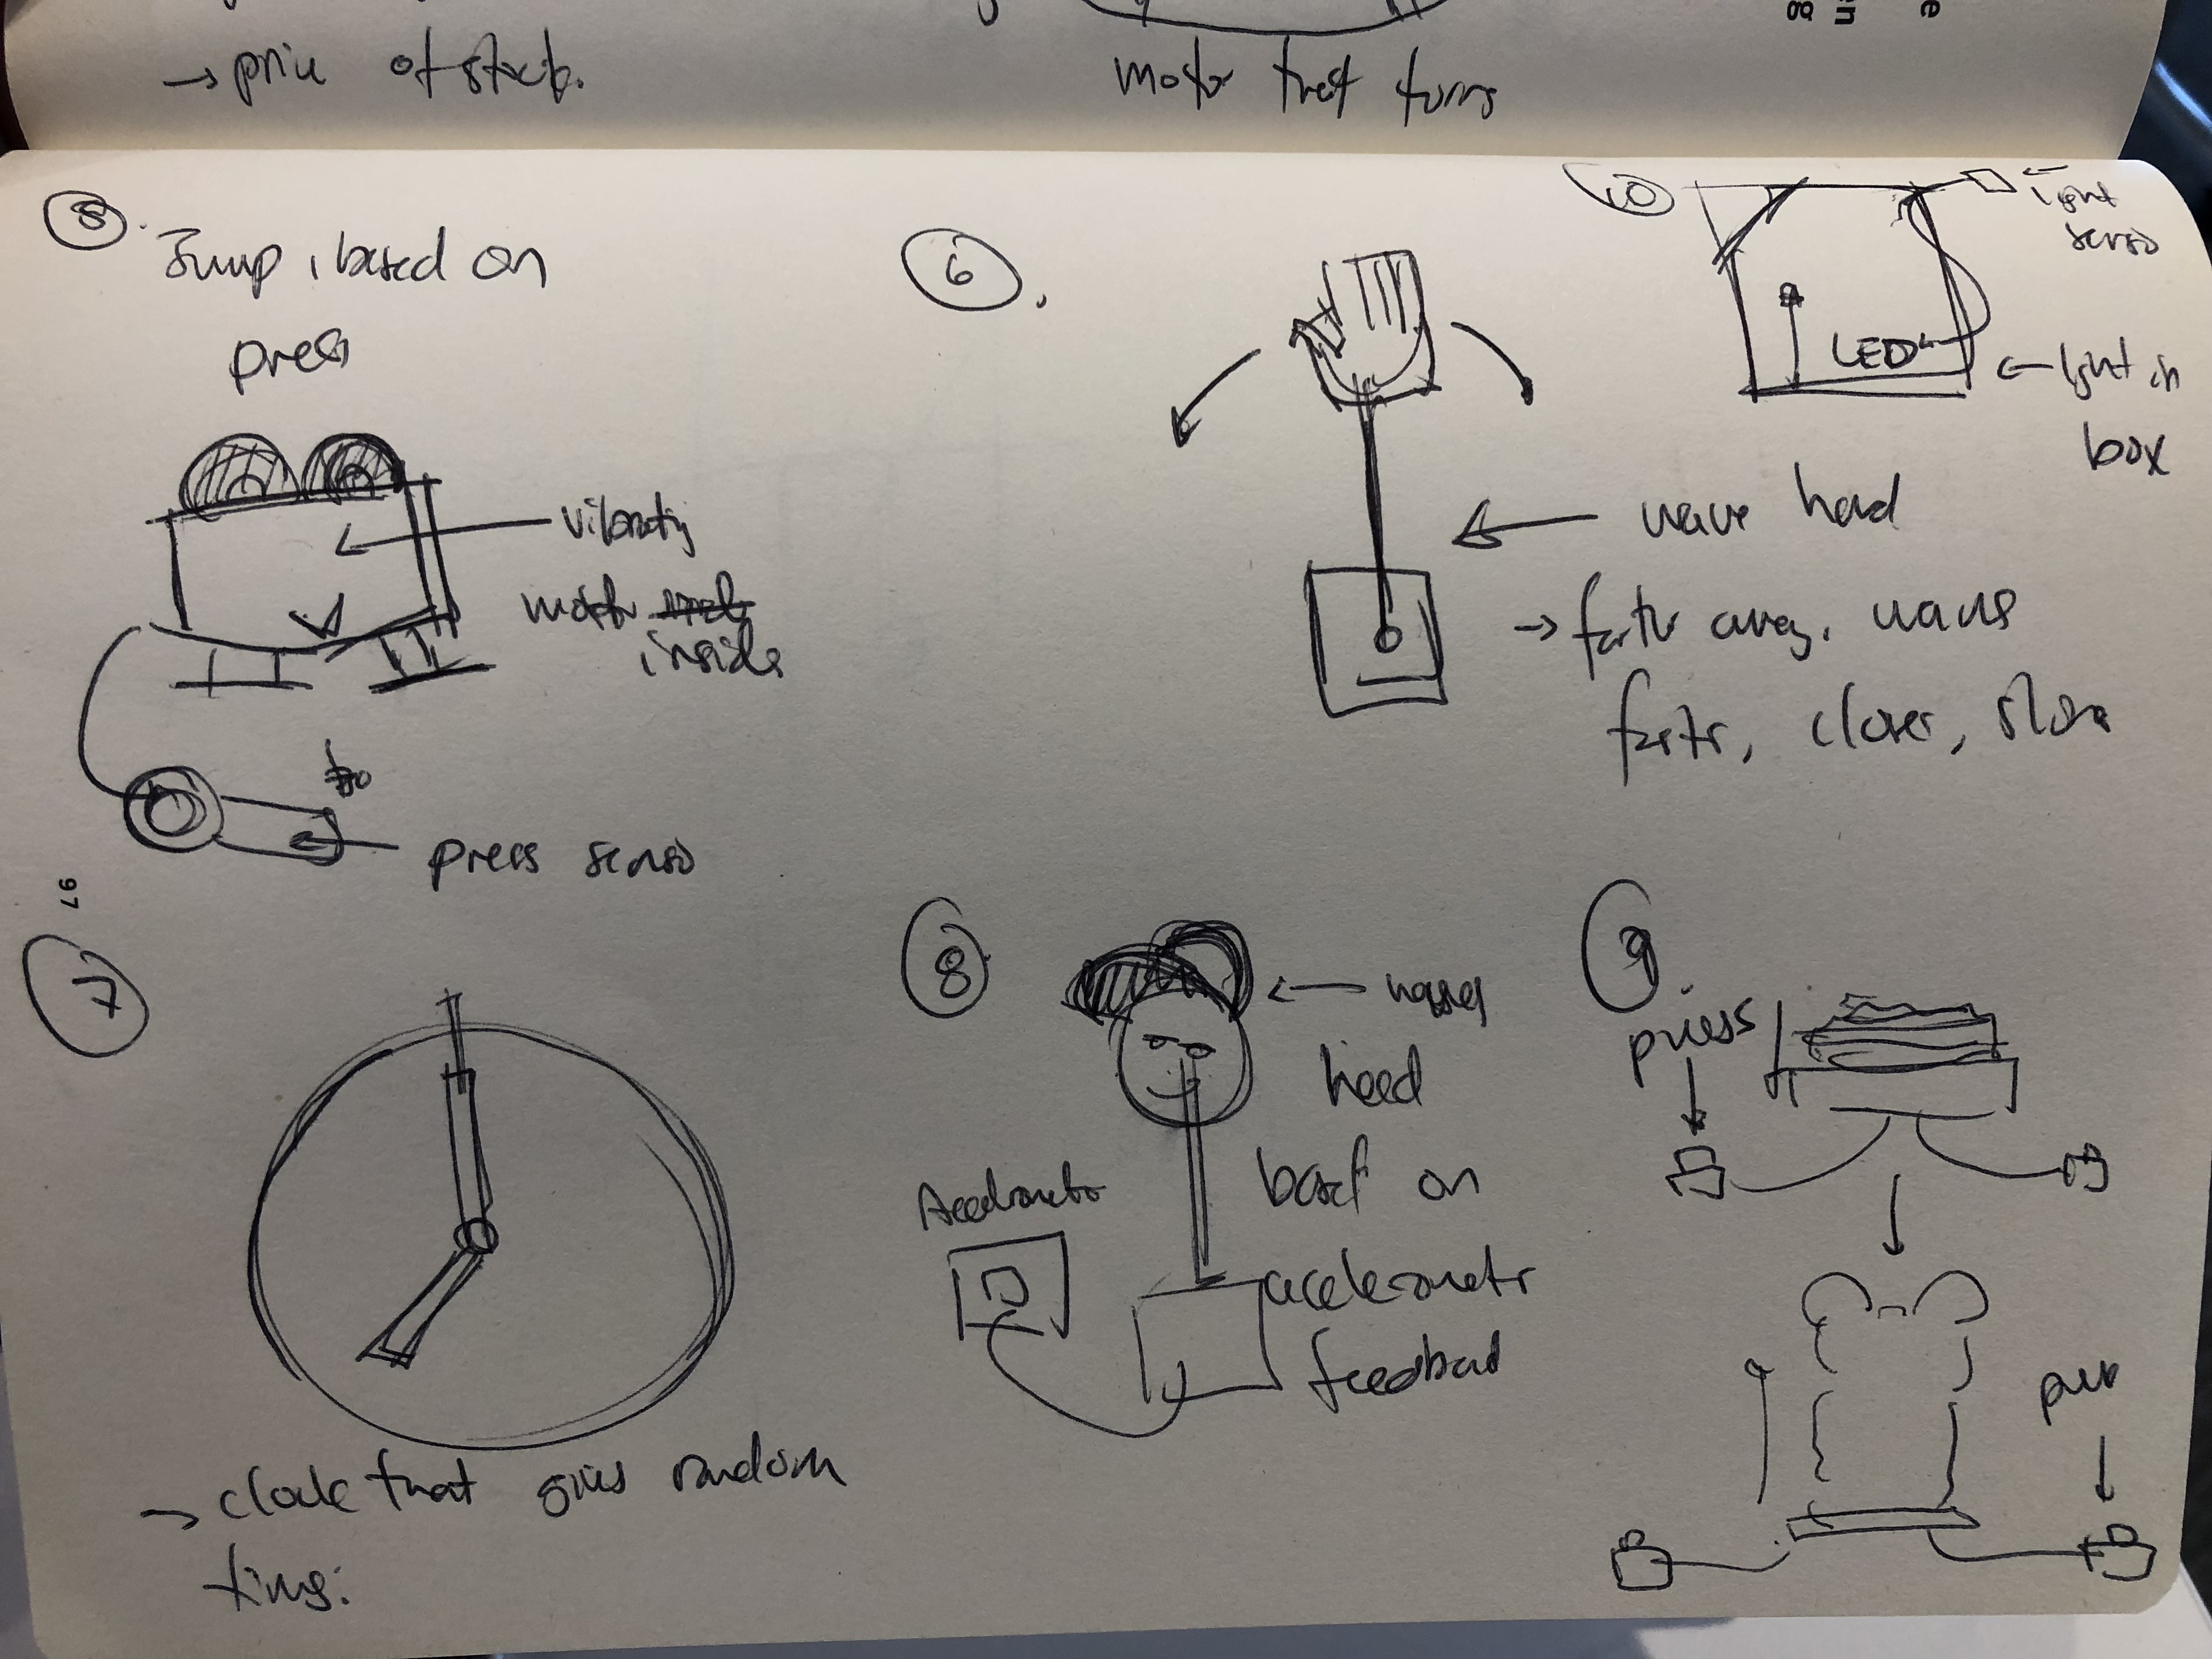 → price of stock.
motor that turns
e
en
g
5.
Jump, based on
press
vibrating
motor
inside
press sensor
6.
wave hand
→ farther away, waves
faster, closer, slow
10
← light
sensor
LED
← light in
box
97
7
→ clock that gives random
time.
8.
←
head
based on
accelerometer
feedback
Accelerometer
9.
press
press